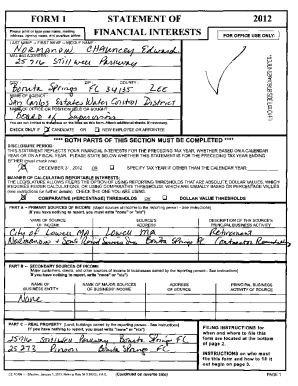 FORM 1
STATEMENT OF
2012
FINANCIAL INTERESTS
Please print or type your name, mailing address, agency name, and position below:
FOR OFFICE USE ONLY:
LAST NAME -- FIRST NAME -- MIDDLE NAME :
Normandin Chauncey Edward
MAILING ADDRESS :
25716 Stillwell Parkway
CITY : ZIP : COUNTY :
Bonita Springs FL 34135 LEE
NAME OF AGENCY :
San Carlos Estates Water Control District
NAME OF OFFICE OR POSITION HELD OR SOUGHT :
Board of Supervisors
You are not limited to the space on the lines on this form. Attach additional sheets, if necessary.
CHECK ONLY IF CANDIDATE OR NEW EMPLOYEE OR APPOINTEE
**** BOTH PARTS OF THIS SECTION MUST BE COMPLETED ****
DISCLOSURE PERIOD:
THIS STATEMENT REFLECTS YOUR FINANCIAL INTERESTS FOR THE PRECEDING TAX YEAR, WHETHER BASED ON A CALENDAR
YEAR OR ON A FISCAL YEAR. PLEASE STATE BELOW WHETHER THIS STATEMENT IS FOR THE PRECEDING TAX YEAR ENDING
EITHER (must check one):
DECEMBER 31, 2012 OR SPECIFY TAX YEAR IF OTHER THAN THE CALENDAR YEAR:
MANNER OF CALCULATING REPORTABLE INTERESTS:
THE LEGISLATURE ALLOWS FILERS THE OPTION OF USING REPORTING THRESHOLDS THAT ARE ABSOLUTE DOLLAR VALUES, WHICH
REQUIRES FEWER CALCULATIONS, OR USING COMPARATIVE THRESHOLDS, WHICH ARE USUALLY BASED ON PERCENTAGE VALUES
(see instructions for further details). CHECK THE ONE YOU ARE USING:
COMPARATIVE (PERCENTAGE) THRESHOLDS OR DOLLAR VALUE THRESHOLDS
PART A -- PRIMARY SOURCES OF INCOME [Major sources of income to the reporting person - See instructions]
(If you have nothing to report, you must write "none" or "n/a")
NAME OF SOURCE OF INCOME
SOURCE'S ADDRESS
DESCRIPTION OF THE SOURCE'S PRINCIPAL BUSINESS ACTIVITY
City of Lowell MA Lowell MA Retirement
Normandin + Sons Bonita Springs FL
PART B -- SECONDARY SOURCES OF INCOME
[Major customers, clients, and other sources of income to businesses owned by the reporting person - See instructions]
(If you have nothing to report, you must write "none" or "n/a")
NAME OF BUSINESS ENTITY
NAME OF MAJOR SOURCES OF BUSINESS' INCOME
ADDRESS OF SOURCE
PRINCIPAL BUSINESS ACTIVITY OF SOURCE
None
PART C -- REAL PROPERTY [Land, buildings owned by the reporting person - See instructions]
(If you have nothing to report, you must write "none" or "n/a")
25716 Stillwell Parkway Bonita Springs FL
25273 Bonita Springs FL
FILING INSTRUCTIONS for
when and where to file this
form are located at the bottom
of page 2.
INSTRUCTIONS on who must
file this form and how to fill it
out begin on page 3.
(Continued on reverse side)
PAGE 1